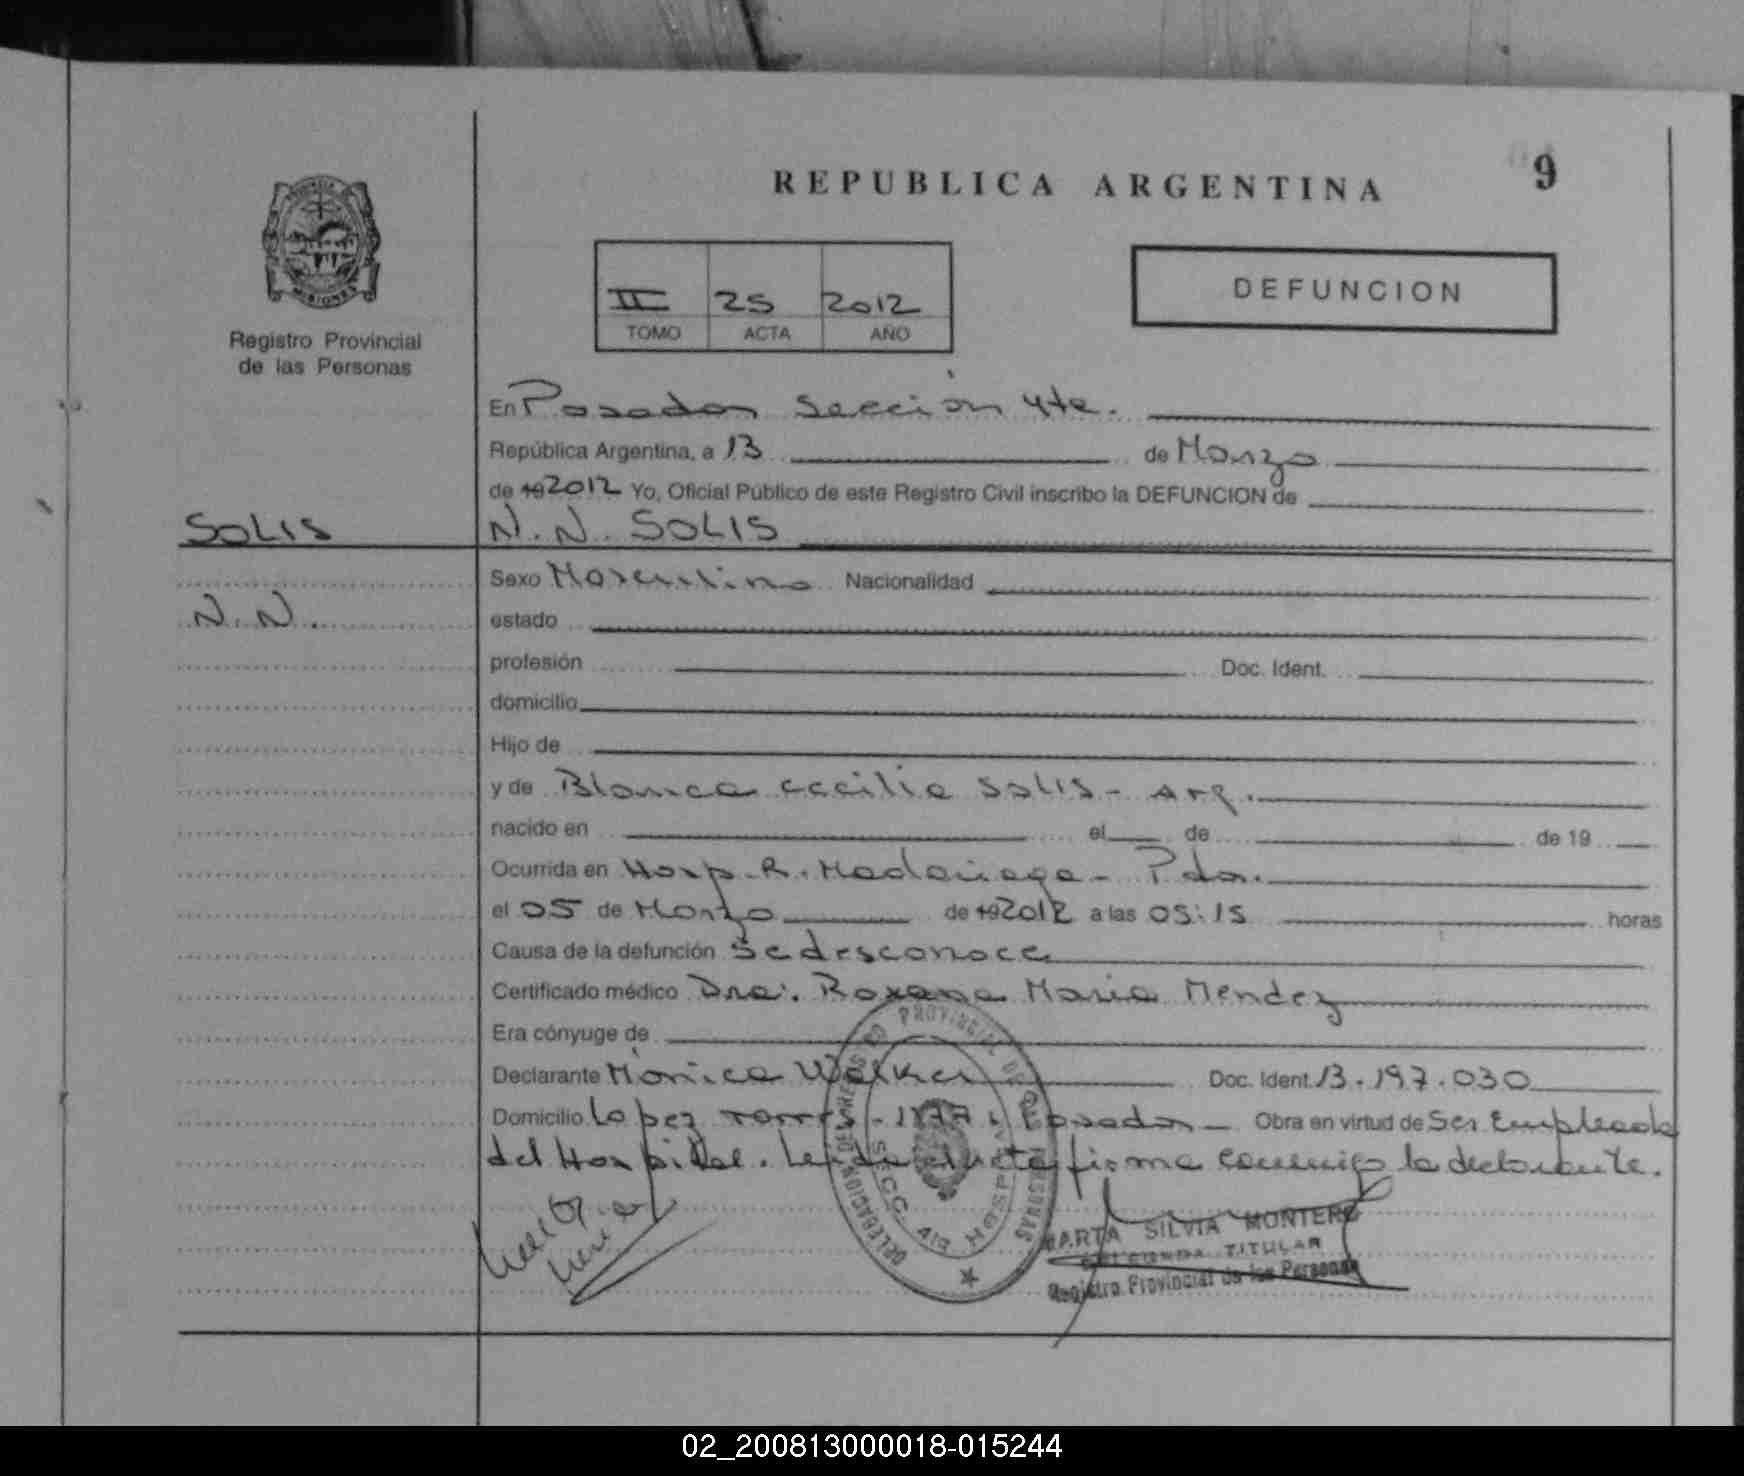 REPUBLICA ARGENTINA
9
MISIONES
Registro Provincial
de las Personas
II 25 2012
TOMO ACTA AÑO
DEFUNCION
En Posadas Sección 4ta.
República Argentina, a 13 de Marzo
de 19 2012 Yo, Oficial Público de este Registro Civil inscribo la DEFUNCION de
SOLIS
N. N. SOLIS
Sexo Masculino Nacionalidad
N. N.
estado
profesión Doc. Ident.
domicilio
Hijo de
y de Blanca Cecilia SOLIS - Arg.
nacido en el de de 19
Ocurrida en Hosp. R. Madariaga - Pdas.
el 05 de Marzo de 19 2012 a las 05:15 horas
Causa de la defunción Se desconoce
Certificado médico Dra. Roxana Maria Mendez
Era cónyuge de
Declarante Mónica Walker Doc. Ident. 13.197.030
Domicilio Lopez Torres - 1177 - Posadas - Obra en virtud de Ser Empleada
del Hospital. Leída el acta firma conmigo la declarante.
DELEGACION DEL REGISTRO PROVINCIAL DE LAS PERSONAS
SECC. 4ta HOSPITAL
MARTA SILVIA MONTERO
DELEGADA TITULAR
Registro Provincial de las Personas
02_200813000018-015244